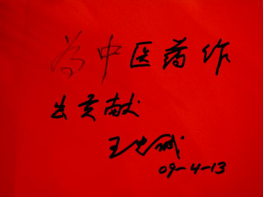 为中医药作
出贡献
王忠诚
09-4-13